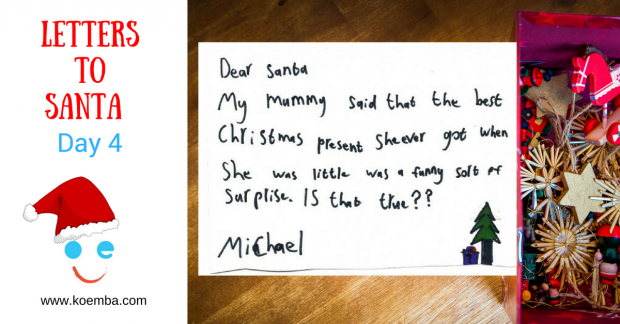 LETTERS
TO
SANTA
Day 4
www.koemba.com
Dear Santa
My mummy said that the best
Christmas present she ever got when
She was little was a funny sort of
Surprise. IS that true??
Michael